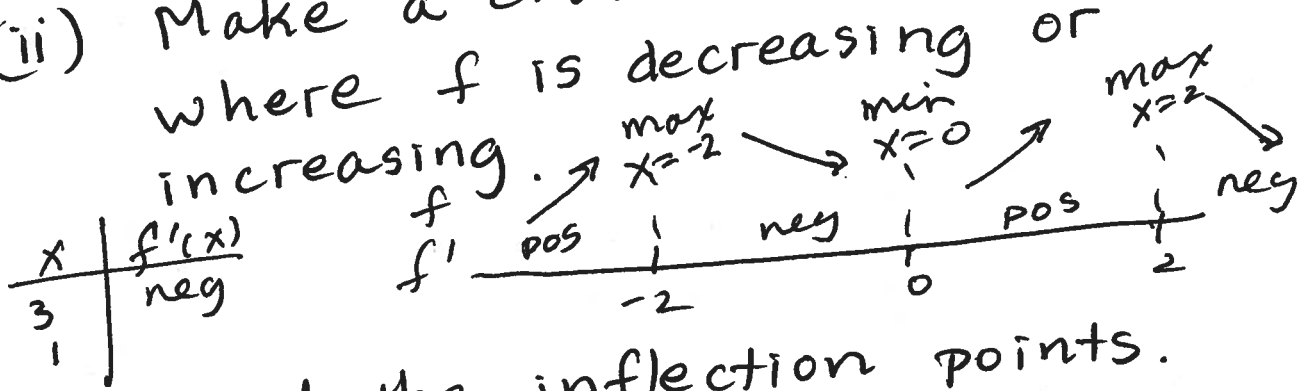 ii) Make a
where f is decreasing or
increasing.
max x=-2
min x=0
max x=2
f
f' pos neg pos neg
-2 0 2
x f'(x)
3 neg
1
inflection points.